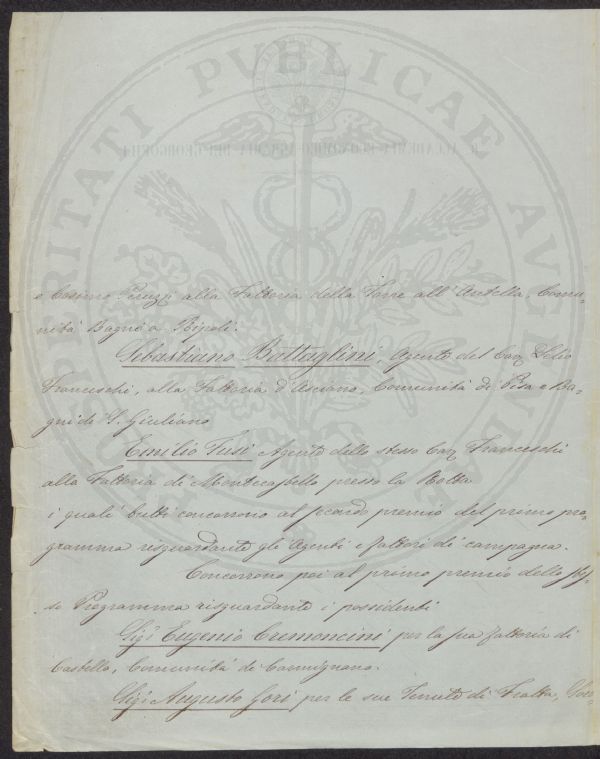 PROSPERITATI PUBLICAE AUGENDAE
R. ACCADEMIA ECONOMICO AGRARIA DEI GEORGOFILI
e Cosimo Peruzzi alla Fattoria della Torre all'Antella, Comu-
nità Bagno a Ripoli.
Sebastiano Battaglini, Agente del Cav. Lelio
Franceschi, alla Fattoria d'Asciano, Comunità di Pisa e Ba-
gni di S. Giuliano
Emilio Tusi Agente dello stesso Cav. Franceschi
alla Fattoria di Montecastello presso la Rotta
i quali tutti concorrono al secondo premio del primo pro-
gramma risguardante gli Agenti e fattori di campagna.
Concorrono poi al primo premio dello stes-
so Programma risguardante i possidenti
Sigr Eugenio Cremoncini per la sua fattoria di
Castello, Comunità di Carmignano.
Sigr Augusto Gori per le sue Tenute di Fratta,